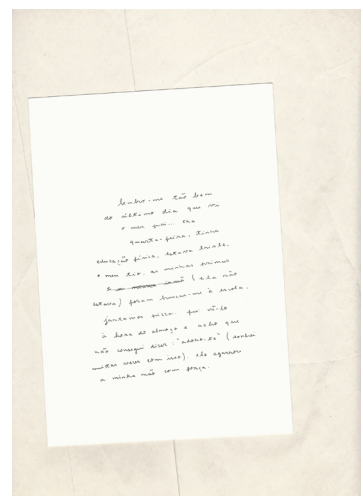 lembro-me tão bem
do último dia que vi
o meu pai... era
quarta-feira, tinha
educação física, estava triste.
o meu tio, as minhas primas
e a minha irmã (ela não
estava) foram buscar-me à escola.
jantamos pizza. fui vê-lo
à hora do almoço e acho que
não consegui dizer: "adoro-te" (sonhei
muitas vezes com isso). ele agarrou
a minha mão com força.